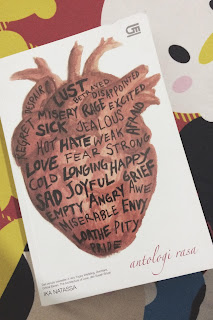 GM
LUST
BETRAYED
DISAPPOINTED
REGRET
MISERY
RAGE
EXCITED
SICK
JEALOUS
AFRAID
HOT
HATE
WEAK
LOVE
FEAR
STRONG
COLD
LONGING
HAPPY
SAD
JOYFUL
GRIEF
EMPTY
ANGRY
AWE
MISERABLE
ENVY
LOATHE
PITY
PRIDE
antologi rasa
IKA NATASSA